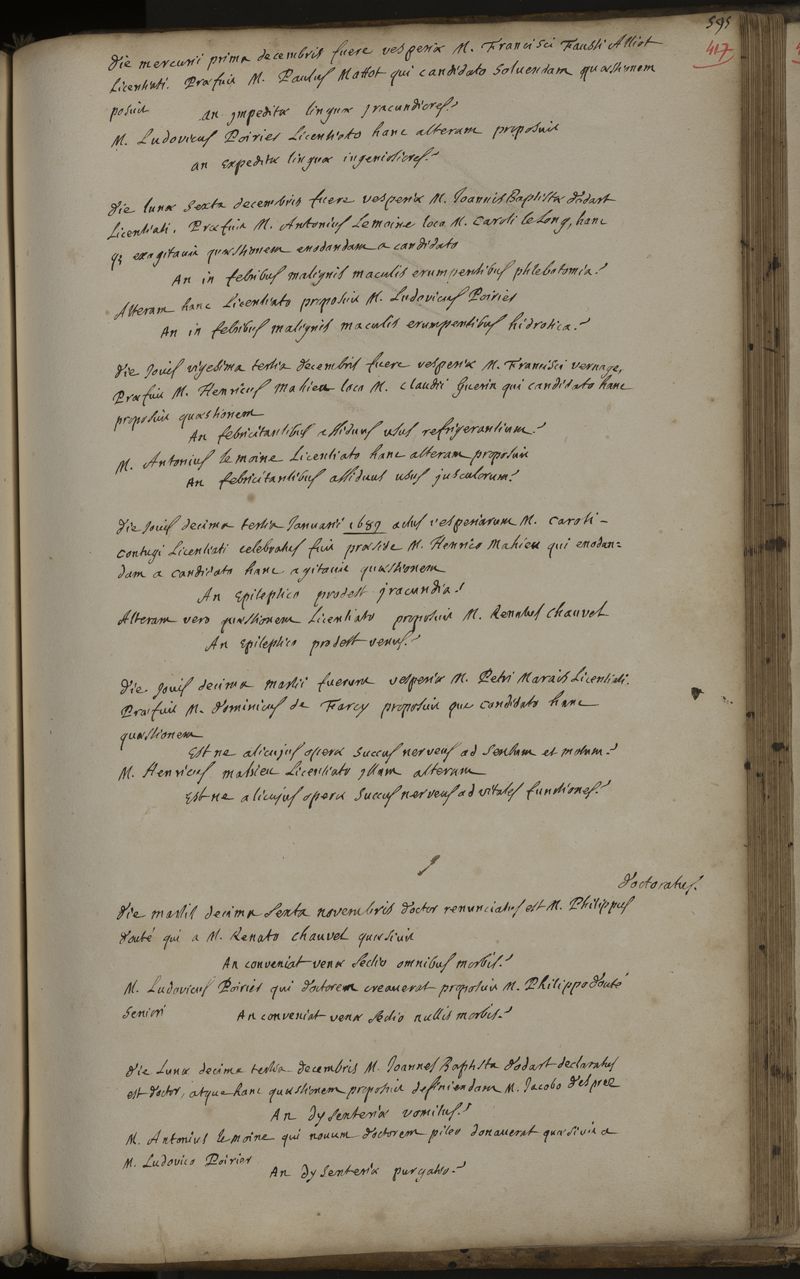 595
417
Die mercurii prima decembris fuere vesperiæ M. Francisci Fausti Alliot
Licentiati. Præfuit M. Paulus Mattot qui candidato soluendam quæstionem
posuit an jmpeditæ linguæ jracundiores?
M. Ludovicus Poiries Licentiato hanc alteram proposuit
an expeditæ linguæ ingeniosiores?
Die lunæ sexta decembris fuere vesperiæ M. Joannis Baptistæ dodart
Licentiati. Præfuit M. Antonius Lemoine loco M. Caroli le Long, hanc
q; exagitauit quæstionem enodandam a candidato
An in febribus malignis maculis erumpentibus phlebotomia?
Alteram hanc Licentiato proposuit M. Ludovicus Poiries
An in febribus malignis maculis erumpentibus hidrotica?
Die Jouis vigesima tertia decembris fuere vesperiæ M. Francisci vernage,
Præfuit M. Henricus mahieu loco M. claudii Guerin qui candidato hanc
proposuit quæstionem
An febricitantibus assiduus usus refrigerantium?
M. Antonius lemoine Licentiato hanc alteram proposuit
An febricitantibus assiduus usus jusculorum?
Die Jouis decima tertia Januarii 1689 actus vesperiarum M. caroli-
contugi Licentiati celebratus fuit præside M. Henrico Mahieu qui enodan=
dam a candidato hanc agitauit quæstionem
An Epileptico prodest jracundia?
Alteram vero quæstionem Licentiato proposuit M. Renatus Chauvel
An Epileptico prodest venus?
Die Jouis decima martii fuerunt vesperiæ M. Petri Marais Licentiati.
Præfuit M. dominicus de Farcy proposuit que candidato hanc
quæstionem
Est ne alicujus operæ succus nerveus ad sensum et motum?
M. Henricus mahieu Licentiato jllam alteram
Est ne alicujus operæ succus nerveus ad vitales functiones?
doctoratus.
Die martis decima sexta novembris doctor renunciatus est M. Philippus
douté qui a M. Renato chauvel quæsiuit
An conveniat venæ sectio omnibus morbis?
M. Ludovicus Poiries qui doctorem creauerat proposuit M. Philippo douté
seniori An conveniat venæ sectio nullis morbis?
Die Lunæ decima tertia decembris M. Joannes Baptista dodart declaratus
est doctor, atque hanc quæstionem proposuit definiendam M. Jacobo despreè
An dysenteriæ vomitus?
M. Antonius lemoine qui nouum doctorem pileo donauerat quæsiuit a
M. Ludovico Poirier
An dysenteriæ purgatio?